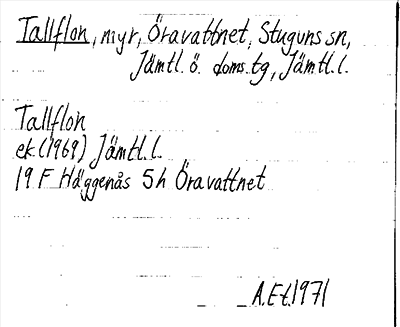 Tallflon, myr, Öravattnet, Stuguns sn,
Jämtl. ö. doms.tg, Jämtl. l.
Tallflon
ek. (1969) Jämtl. l.
19 F Häggenås 5h Öravattnet
A.Et. 1971